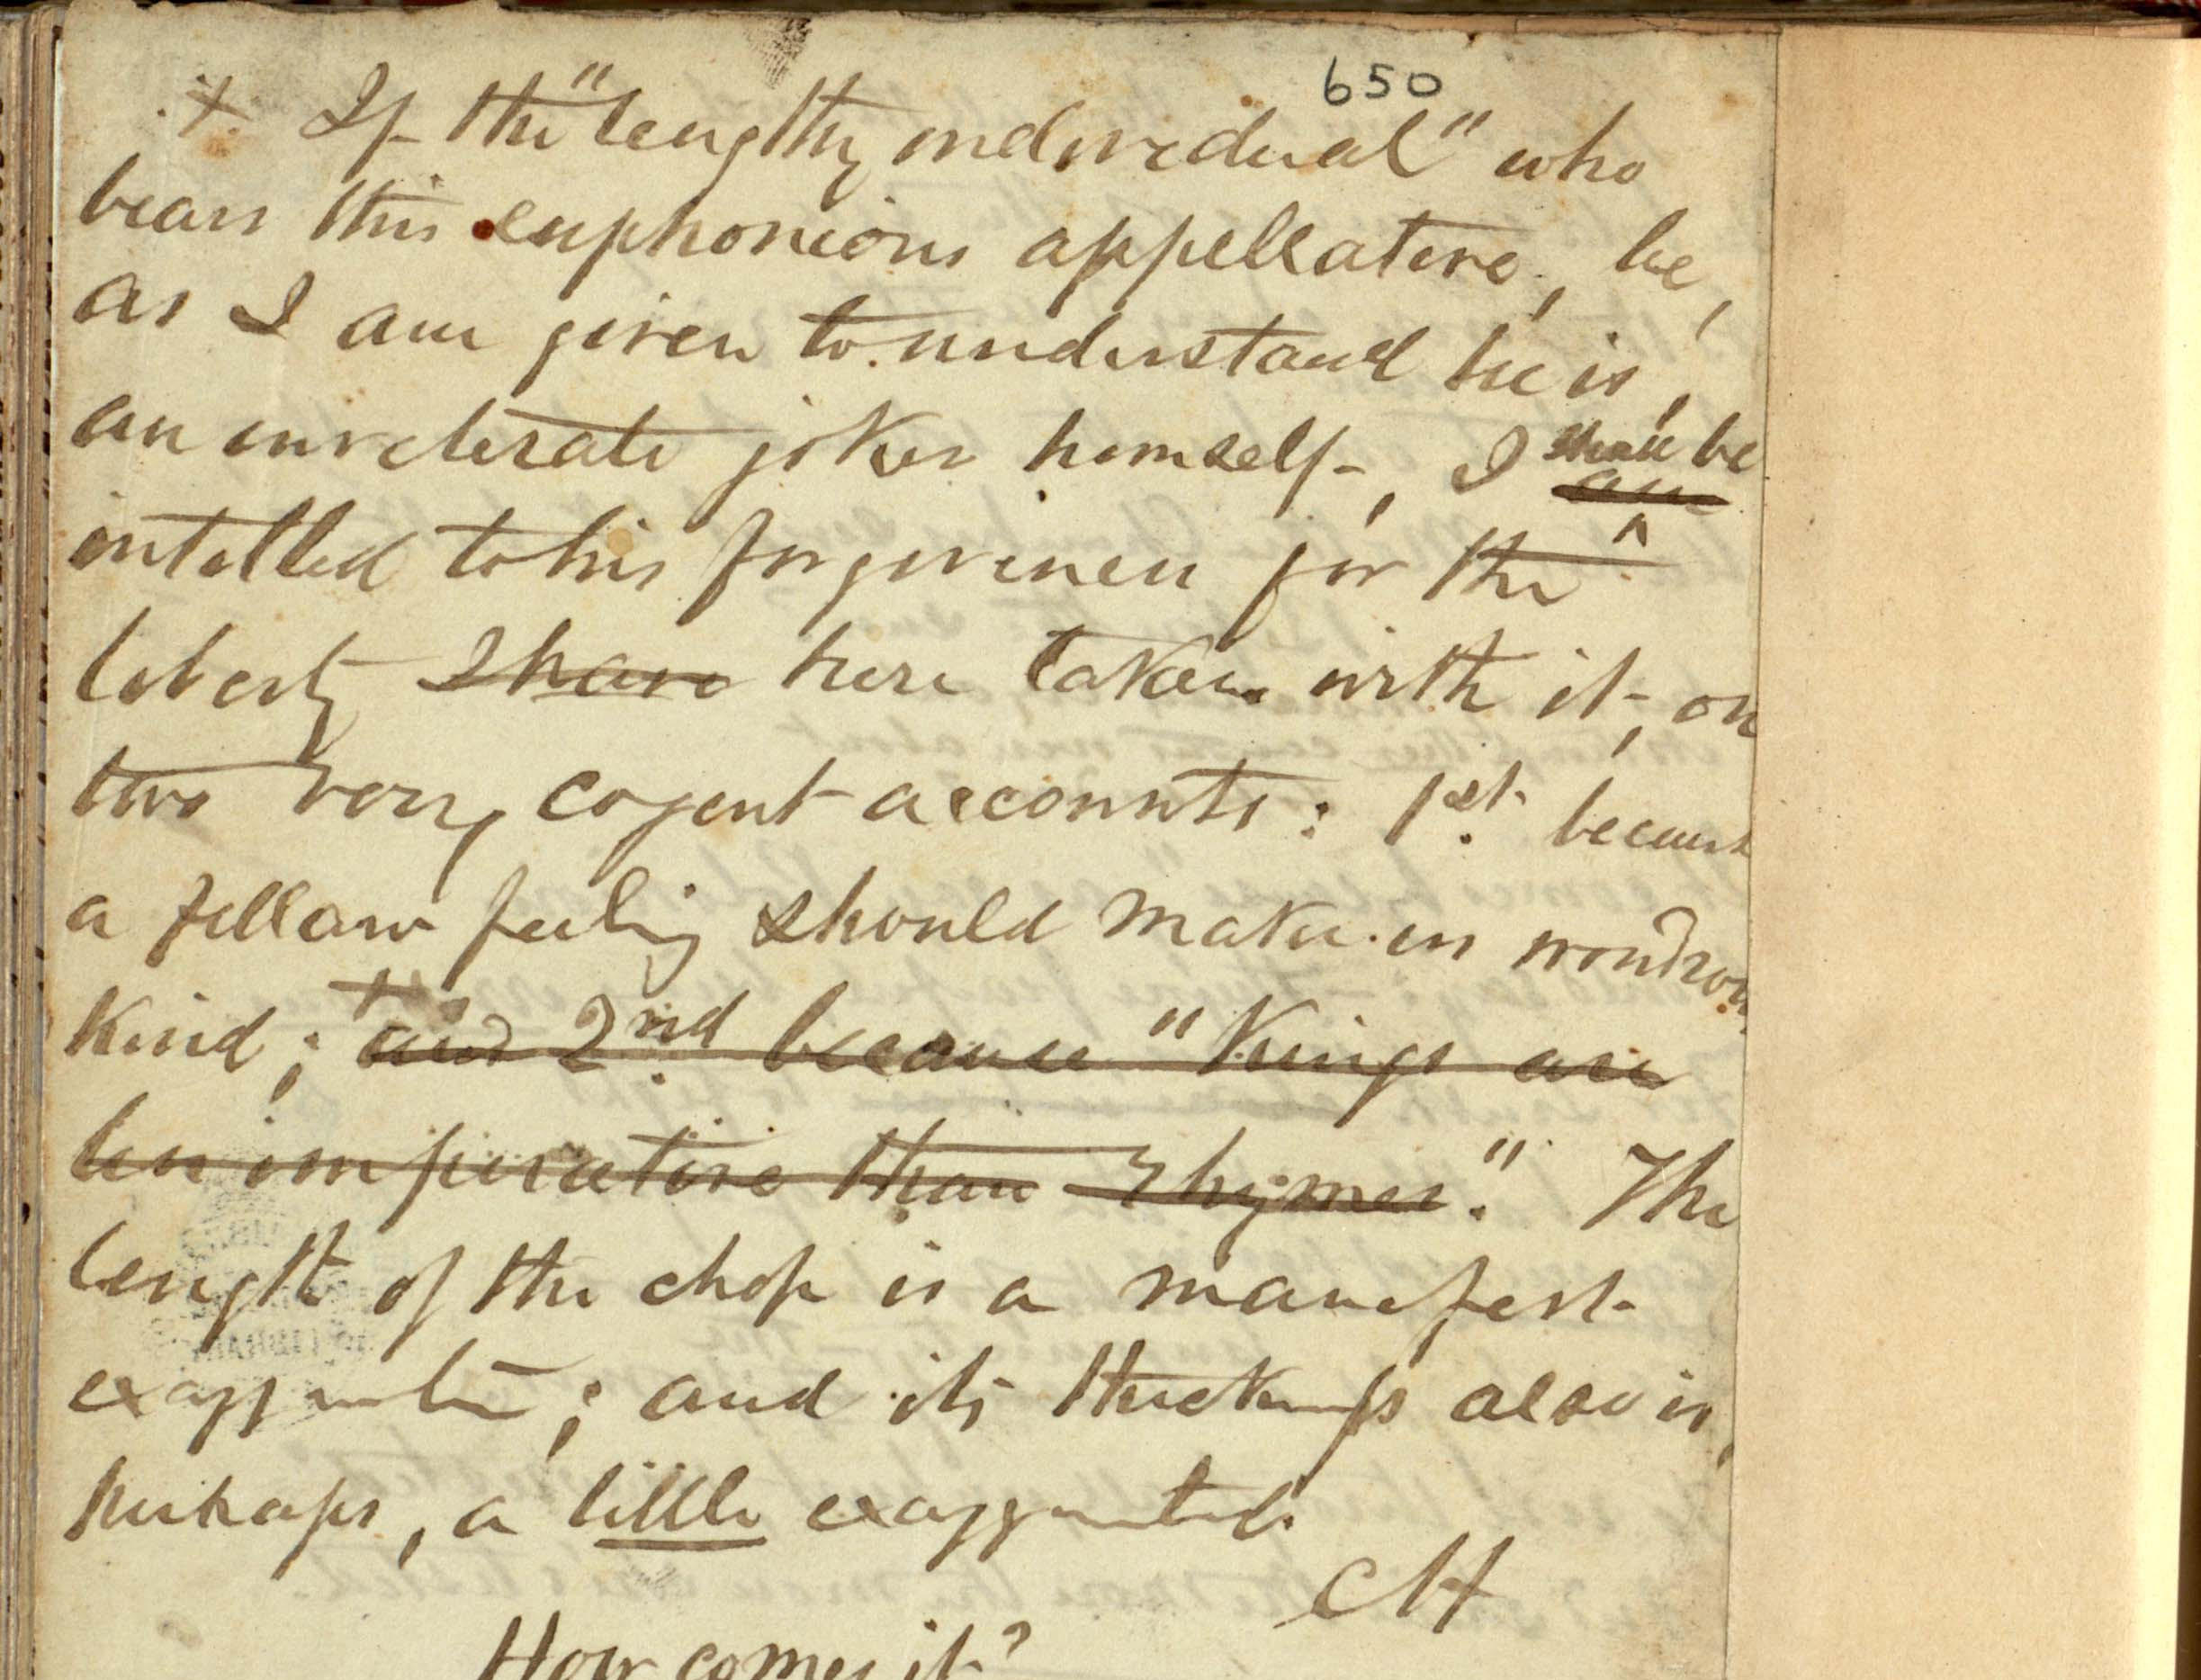 650
+ If the "lengthy individual" who
bears this euphonious appellative, be,
as I am given to understand he is,
an inveterate joker himself, I shall be
am
^
intitled to his forgiveness for the
liberty I have here taken with it, on
two very cogent accounts: 1st. because
a fellow feeling should make us wondrous
kind; and 2nd. because "Kings are
less imperative than rhymes." The
length of the chop is a manifest
exaggeration; and its thickness also is,
perhaps, a little exaggerated.
CH
How comes it?